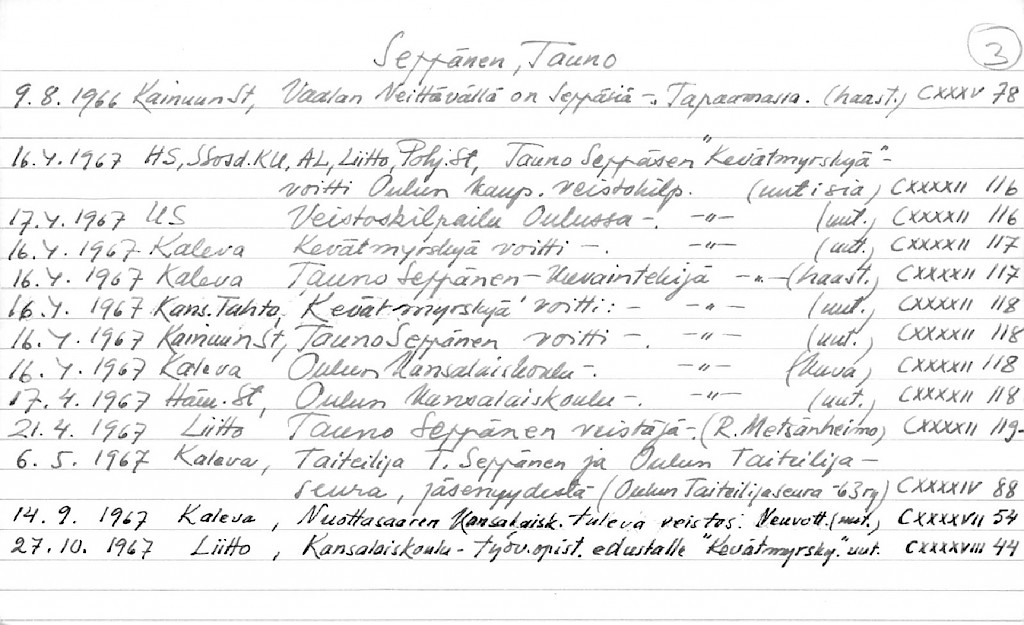 Seppänen, Tauno
3
9.8.1966 Kainuun St, Vaalan Neittävällä on Seppäsiä -. Tapaamassa. (haast.) CXXXV 78
16.4.1967 HS, SSosd. KU, AL, Liitto, Pohj.St, Tauno Seppäsen "Kevätmyrskyä" -
voitti Oulun kaup. veistokilp. (uutisia) CXXXXII 116
17.4.1967 US Veistoskilpailu Oulussa -. -"- (uut.) CXXXXII 116
16.4.1967 Kaleva Kevätmyrskyä voitti -. -"- (uut.) CXXXXII 117
16.4.1967 Kaleva Tauno Seppänen - Kuvaintekijä -"- (haast.) CXXXXII 117
16.4.1967 Kans.Tahto, 'Kevät-myrskyä' voitti: - -"- (uut.) CXXXXII 118
16.4.1967 Kainuun St, Tauno Seppänen voitti -. -"- (uut.) CXXXXII 118
16.4.1967 Kaleva Oulun Kansalaiskoulu -. -"- (kuva) CXXXXII 118
17.4.1967 Häm. St, Oulun Kansalaiskoulu -. -"- (uut.) CXXXXII 118
21.4.1967 Liitto Tauno Seppänen veistäjä -. (R. Metsänheimo) CXXXXII 119-
6.5.1967 Kaleva, Taiteilija T. Seppänen ja Oulun Taiteilija -
seura, jäsenyydestä (Oulun Taiteilijaseura -63 ry) CXXXXIV 88
14.9.1967 Kaleva, Nuottasaaren Kansalaisk. tuleva veistos: Neuvott. (uut.) CXXXXVII 54
27.10.1967 Liitto, Kansalaiskoulu - työv.opist. edustalle "Kevätmyrsky". uut. CXXXXVIII 44